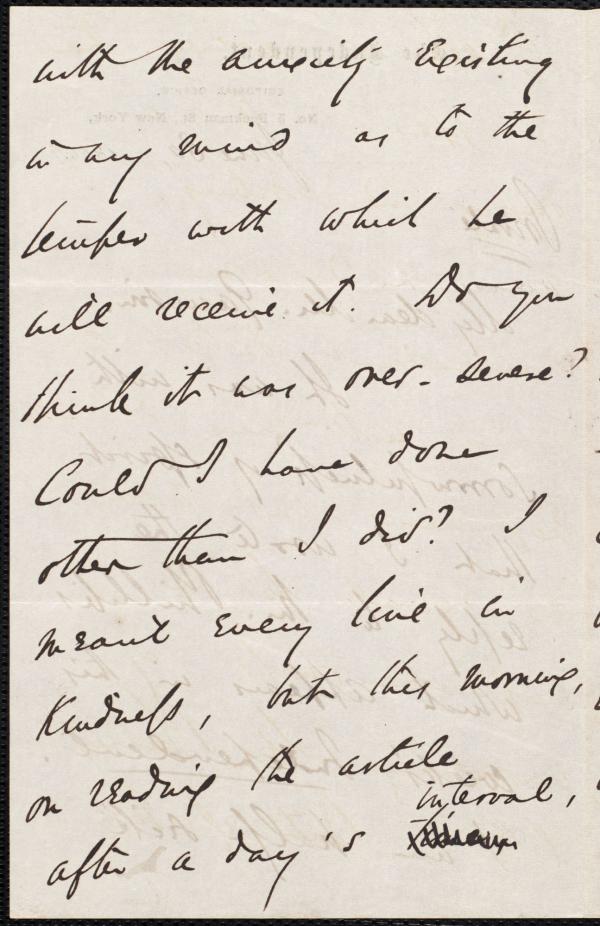 with the anxiety existing
in my mind as to the
temper with which he
will receive it. Do you
think it was over-severe?
Could I have done
other than I did? I
meant every line in
Kindness, but this morning,
on reading the article
after a day's interval,